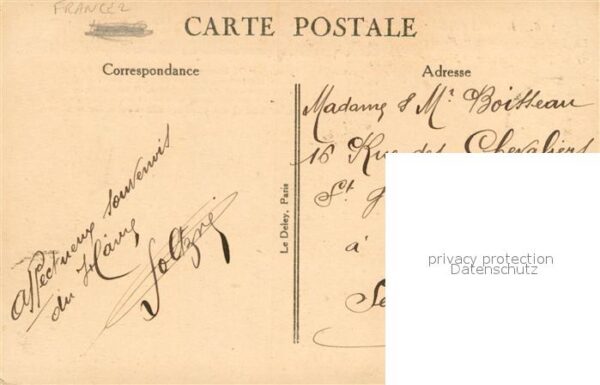 FRANCE 2
CARTE POSTALE
Correspondance
Affectueux souvenirs
du Hâvre
Le Deley, Paris
Adresse
Madame & Mr Boisseau
16 Rue des Chevaliers
St
à
Se
privacy protection
Datenschutz